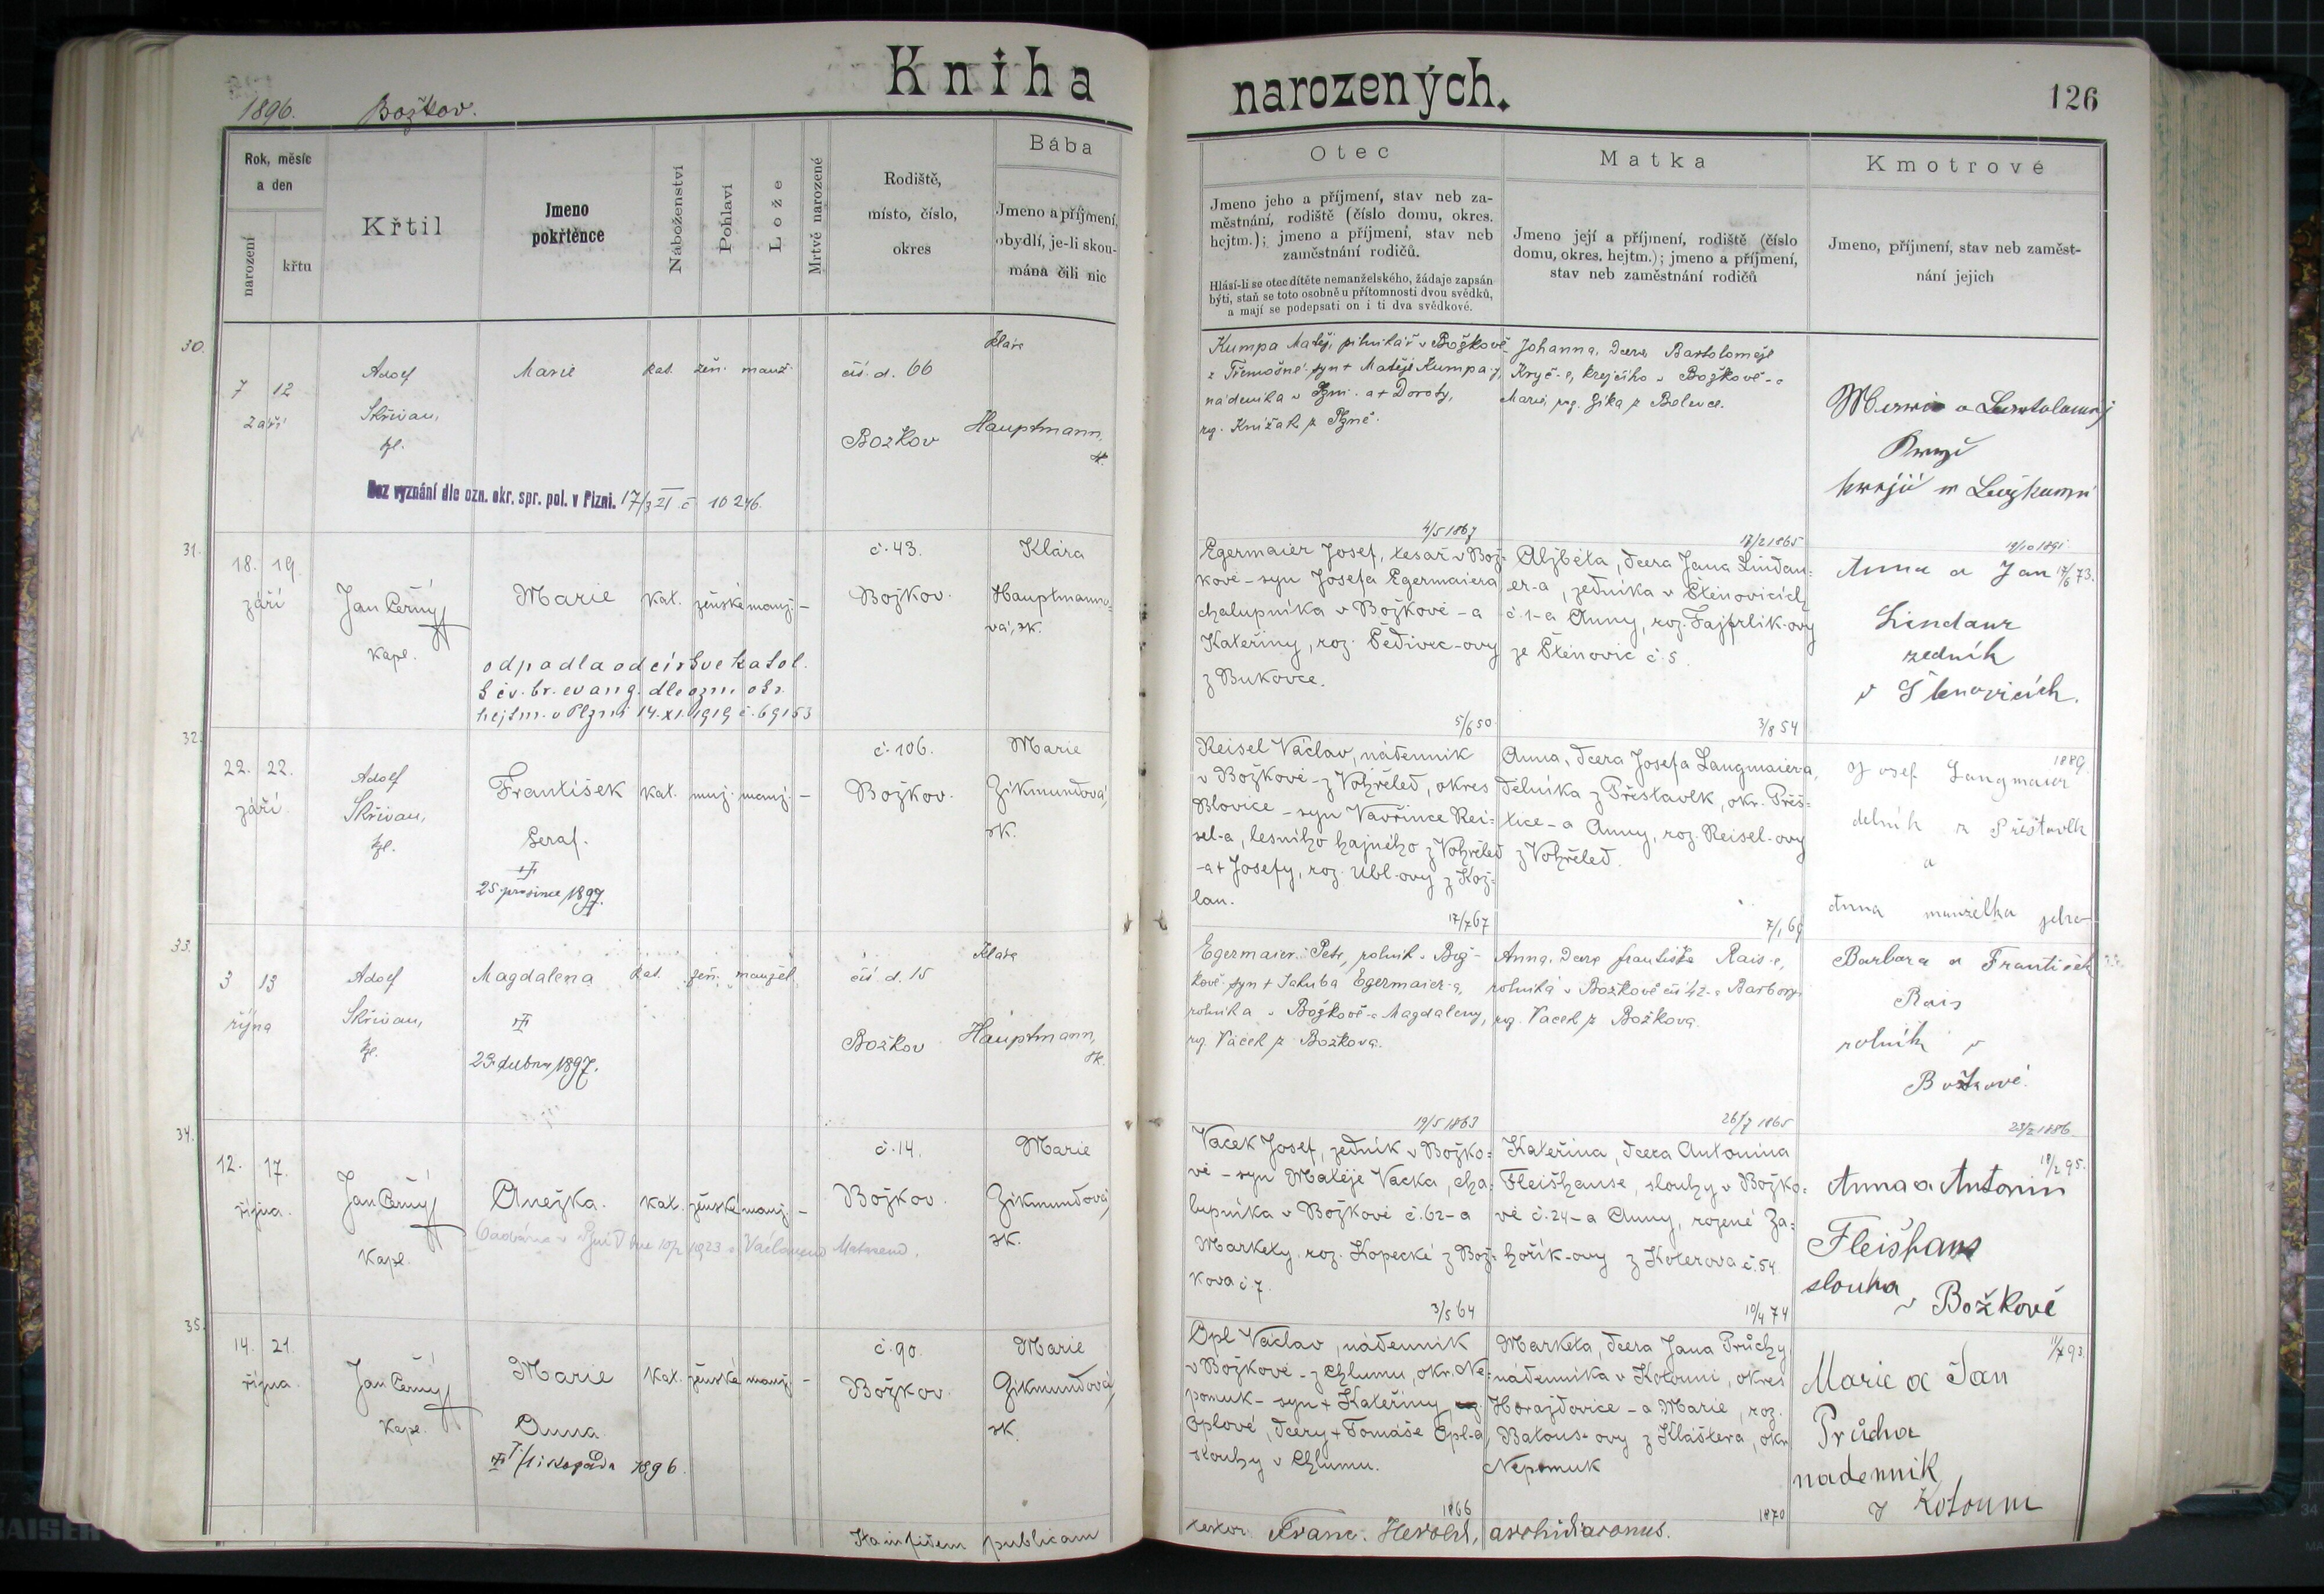 Kniha narozených.
126
1896. Božkov.
Rok, měsíc
a den
narození
křtu
Křtil
Jmeno
pokřtěnce
Náboženství
Pohlaví
Lože
Mrtvě narozené
Rodiště,
místo, číslo,
okres
Bába
Jmeno a příjmení,
obydlí, je-li zkou-
mána čili nic
Otec
Jmeno jeho a příjmení, stav neb za-
městnání, rodiště (číslo domu, okres.
hejtm.); jmeno a příjmení, stav neb
zaměstnání rodičů.
Hlásí-li se otec dítěte nemanželského, žádaje zapsán
býti, staň se toto osobně u přítomnosti dvou svědků,
a mají se podepsati on i ti dva svědkové.
Matka
Jmeno její a příjmení, rodiště (číslo
domu, okres. hejtm.); jmeno a příjmení,
stav neb zaměstnání rodičů
Kmotrové
Jmeno, příjmení, stav neb zaměst-
nání jejich
30.
7 12
září
Adolf
Skřivan,
kpl.
Marie
kat. žen. manž.
čís. d. 66
Božkov
Klára
Hauptmann,
zk.
Bez vyznání dle ozn. okr. spr. pol. v Plzni. 17/3 21 č 10246.
Kumpa Matěj, pilnikář v Božkově
z Třemošné syn + Matěje Kumpa
nádeníka v a + Doroty,
roz. Knížak z
Johanna, dcera Bartoloměje
krejčího v Božkově - a
Marie, roz. Zíka z
a
krejčí
31.
18. 19.
září
Jan Černý
kapl.
Marie
kat. ženské manž. –
č. 43.
Božkov.
Klára
Hauptmanno-
vá, zk.
odpadla od církve katol.
k čv. br. evang. dle ozn. okr.
hejtm. v Plzni 14.XI.1919 č. 69153
4/5 1867
Egermaier Josef, tesař v Bož-
kově - syn Josefa Egermaiera
chalupníka v Božkově - a
Kateřiny, roz. Šedivec-ovy
z Bukovce.
17/2 1865
Alžběta, dcera Jana Lindau-
er-a, zedníka v Štěnovicích
č. 1 - a Anny, roz. Fajfrlik-ovy
ze Štěnovic č. 5.
19/10 1891
Anna a Jan 17/6 73.
Lindaur
zedník
v Štenovicích.
32.
22. 22.
září
Adolf
Skřivan,
kpl.
František
Seraf.
25. prosince 1897.
kat. muž. manž. –
č. 106.
Božkov.
Marie
Zikmundová,
zk.
5/6 50
Reisel Václav, nádenník
v Božkově - z Vohřeled, okres
Blovice - syn Vavřince Rei-
sel-a, lesního hajného z Vohřeled
- a + Josefy, roz. Ubl-ovy z Kož-
lan.
3/8 54
Anna, dcera Josefa Langmaiera,
dělníka z Přestavlk, okr. Přeš-
tice - a Anny, roz. Reisel-ovy
z Vohřeled.
1889.
Josef Langmaier
delník z Přištavlk
a
Anna manželka jeho
33.
3 13
října
Adolf
Skřivan,
kpl.
Magdalena
23. dubna 1897.
kat. žen. manžel.
čís. d. 15
Božkov
Klára
Hauptmann,
zk.
17/7 67
Egermaier Petr, rolník v Bož-
kově syn + Jakuba Egermaier-a,
rolníka v Božkově - a Magdaleny,
roz. Vacek z Božkova.
7/1 69
Anna, dcera Františka Rais-e,
rolníka v Božkově čís 42 - a Barbory
roz. Vacek z Božkova.
Barbara a František
Rais
rolník v
Božkově.
34.
12. 17.
října.
Jan Černý
kapl.
Anežka.
kat. ženské manž. –
č. 14.
Božkov.
Marie
Zikmundová,
zk.
19/5 1863
Vacek Josef, zedník v Božko-
vě - syn Matěje Vacka, cha-
lupníka v Božkově č. 62 - a
Markety, roz. Kopecké z Bož-
kova č 7.
26/7 1865
Kateřina, dcera Antonína
Fleišhanse, slouhy v Božko-
vě č. 24 - a Anny, rozené Za-
hořík-ovy z Koterova č. 54
23/2 1886.
18/2 95.
Anna a Antonín
Fleišhans
slouha
v Božkově
35.
14. 21.
října.
Jan Černý
kapl.
Marie
Anna
1/listopadu 1896.
kat. ženské manž. –
č. 90.
Božkov.
Marie
Zikmundová,
zk.
3/5 64
Opl Václav, nádenník
v Božkově - z Chlumu, okr. Ne-
pomuk - syn + Kateřiny,
Oplové, dcery + Tomáše Opl-a,
slouhy v Chlumu.
10/4 74
Marketa, dcera Jana Průchy
nádenníka v Kotouni, okres
Horažďovice - a Marie, roz.
Batous-ovy z Kláštera, okr.
Nepomuk
11/7 93.
Marie a Jan
Průcha
nadenník
z Kotoun
1866
1870
Ita in fidem publicam
testor Franc. Herold, archidiaconus.